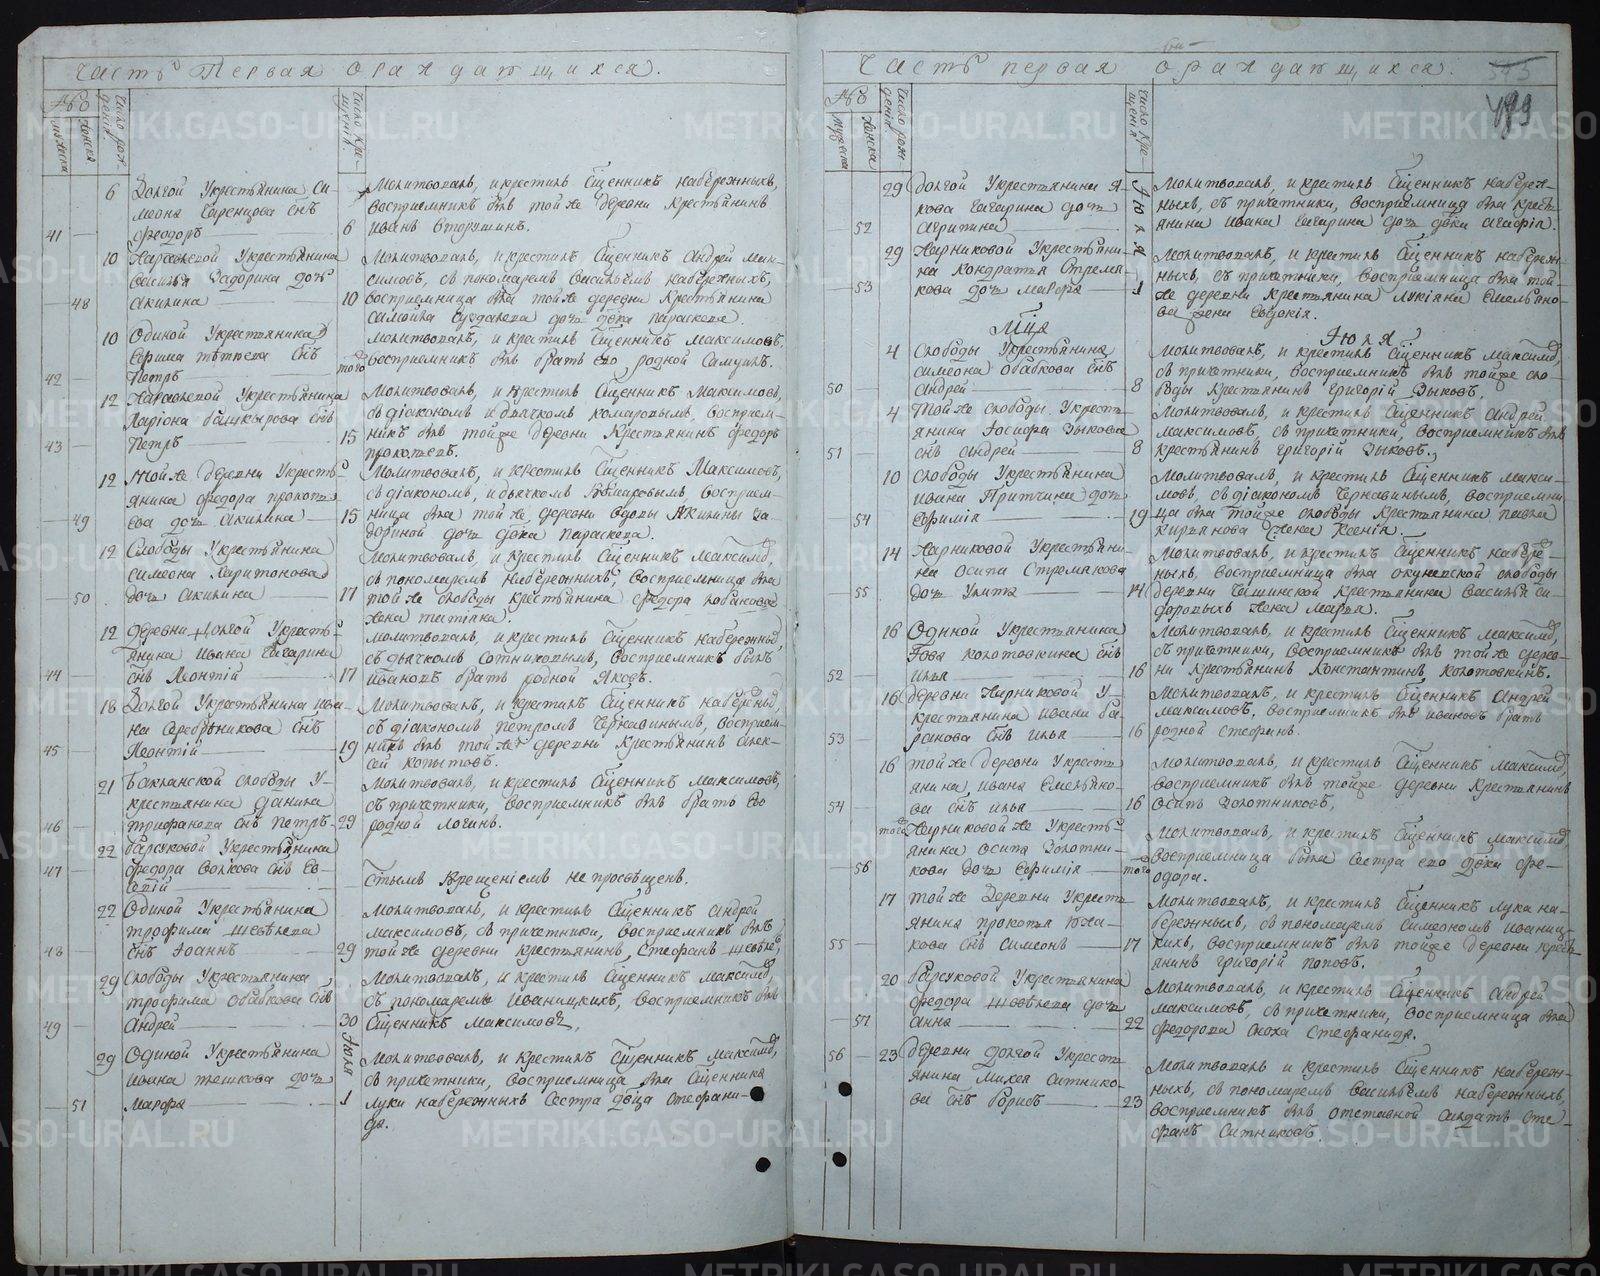 Часть Первая о раждающихся.
№
мужеска
женска
Число рождений.
Число крещений.
6 Долгой Укрестьянина Си-
меона сынъ
41 Феодоръ
6
Молитвовалъ, и крестилъ Сщенникъ Набережныхъ,
восприемникъ былъ той же деревни Крестьянинъ
Иванъ
10 Укрестьянина
Василья Задорина дочь
48 Акилина
10
Молитвовалъ, и крестилъ Сщенникъ Андрей Мак-
симовъ, съ пономаремъ Василіемъ Набережныхъ,
восприемница была той же деревни Крестьянина
дочь девка Параскева.
10 Одиной Укрестьянина
сынъ
42 Петръ
того
Молитвовалъ, и крестилъ Сщенникъ Максимовъ,
восприемникъ былъ братъ его родной
12 Укрестьянина
Ларіона Башкырова сынъ
43 Петръ
15
Молитвовалъ, и крестилъ Сщенникъ Максимовъ,
съ діакономъ и дьячкомъ Комаровымъ, восприем-
никъ былъ той же деревни Крестьянинъ Федоръ
Прокопьевъ.
12 Той же деревни Укресть-
янина Федора Прокопь-
49 ева дочь Акилина
15
Молитвовалъ, и крестилъ Сщенникъ Максимовъ,
съ діакономъ, и дьячкомъ Комаровымъ, восприем-
ница была той же деревни вдовы Акилины За-
дориной дочь девка Параскева.
12 Слободы Укрестьянина
Симеона Харитонова
50 дочь Акилина
17
Молитвовалъ, и крестилъ Сщенникъ Максимовъ,
съ пономаремъ Набережныхъ, восприемница была
той же слободы крестьянина Федора
жена
12 деревни Долгой Укресть-
янина Ивана Гагарина
44 сынъ Леонтій
17
Молитвовалъ, и крестилъ Сщенникъ Набережныхъ,
съ дьячкомъ Сотниковымъ, восприемникъ былъ
Ивановъ братъ родной Яковъ.
18 Долгой Укрестьянина Ива-
на Серебреникова сынъ
45 Леонтій
19
Молитвовалъ, и крестилъ Сщенникъ Набережныхъ,
съ діакономъ Петромъ Чернавинымъ, восприем-
никъ былъ той же деревни Крестьянинъ Алек-
сей Копытовъ.
21 слободы У-
крестьянина Данила
46 Трифанова сынъ Петръ
29
Молитвовалъ, и крестилъ Сщенникъ Максимовъ,
съ причетники, восприемникъ былъ братъ его
родной Логинъ.
22 Барсуковой Укрестьянина
47 Федора Волкова сынъ Ев-
Стымъ Крещеніемъ не просвещенъ.
22 Одиной Укрестьянина
Трофима Шевелева
48 сынъ Іоаннъ
29
Молитвовалъ, и крестилъ Сщенникъ Андрей
Максимовъ, съ причетники, восприемникъ былъ
той же деревни крестьянинъ, Стефанъ Шевелевъ
29 Слободы Укрестьянина
Трофима Обабкова сынъ
49 Андрей
30
Молитвовалъ, и крестилъ Сщенникъ Максимовъ,
съ пономаремъ Иваницкихъ, восприемникъ былъ
Сщенникъ Максимовъ,
29 Одиной Укрестьянина
Ивана Тешкова дочь
51 Марфа
Іюля
1
Молитвовалъ, и крестилъ Сщенникъ Максимовъ,
съ причетники, восприемница была Сщенника
Луки Набережныхъ сестра девица Стефани-
да.
Часть первая о раждающихся.
545
499
№
мужеска
женска
Число рождений.
Число крещения.
29 Долгой Укрестьянина Я-
кова Гагарина дочь
52 Агрипина
Іюля
Молитвовалъ, и крестилъ Сщенникъ Набереж-
ныхъ, съ причетники, восприемница была крест-
янина Ивана Гагарина дочь девка Агафія.
29 Жирниковой Укрестьяни-
на Кондратья Стрема-
53 кова дочь Марфа
1
Молитвовалъ, и крестилъ Сщенникъ Набереж-
ныхъ, съ причетники, восприемница была той-
же деревни Крестьянина Лукіана Емельяно-
ва жена Евдокія.
Мця Іюля
4 Слободы Укрестьянина
Симеона Обабкова сынъ
50 Андрей
8
Молитвовалъ, и крестилъ Сщенникъ Максимовъ,
съ причетники, восприемникъ былъ тойже сло-
боды Крестьянинъ Григорій Зыковъ.
4 Той же слободы Укресть-
янина Іосифа Зыкова
51 сынъ Андрей
8
Молитвовалъ, и крестилъ Сщенникъ Андрей
Максимовъ, съ причетники, восприемникъ былъ
крестьянинъ Григорій Зыковъ.
10 Слободы Укрестьянина
Ивана Притчина дочь
54 Евфимія
19
Молитвовалъ, и крестилъ Сщенникъ Макси-
мовъ, съ діакономъ Чернавинымъ, восприемни-
ца была тойже слободы Крестьянина Павла
Кирьянова жена Ксенія.
14 Жирниковой Укрестьяни-
на Осипа Стремакова
55 дочь Улита
14
Молитвовалъ, и крестилъ Сщенникъ Набере-
ныхъ, восприемница была Окуневской слободы
деревни крестьянина Василья Си-
доровыхъ жена Марья.
16 Одиной Укрестьянина
Іова Колотовкина сынъ
52 Илья
16
Молитвовалъ, и крестилъ Сщенникъ Максимовъ,
съ причетники, восприемникъ былъ той же дерев-
ни Крестьянинъ Константинъ Колотовкинъ.
16 деревни Жирниковой У-
крестьянина Ивана Ба-
53 ракова сынъ Илья
16
Молитвовалъ, и крестилъ Сщенникъ Андрей
Максимовъ, восприемникъ былъ Ивановъ братъ
родной Стефанъ.
16 той же деревни Укресть-
янина, Ивана Емельяно-
54 ва сынъ Илья
16
Молитвовалъ, и крестилъ Сщенникъ Максимовъ,
восприемникъ былъ тойже деревни Крестьянинъ
Осипъ Золотниковъ,
того Жирниковой же Укресть-
янина Осипа Золотни-
56 кова дочь Евфимія
того
Молитвовалъ, и крестилъ Сщенникъ Максимовъ,
восприемница была сестра его девка Фе-
одора.
17 той же Деревни Укресть-
янина Прокопья Южа-
55 кова сынъ Симеонъ
17
Молитвовалъ, и крестилъ Сщенникъ Лука На-
бережныхъ, съ пономаремъ Симеономъ Иваниц-
кихъ, восприемникъ былъ тойже деревни крест-
янинъ Григорій Поповъ.
20 Барсуковой Укрестьянина
Федора Шевелева дочь
57 Анна
22
Молитвовалъ, и крестилъ Сщенникъ Андрей
Максимовъ, съ причетники, восприемница была
Федорова сноха Стефанида.
56 23 деревни Долгой Укресть-
янина Михея Ситнико-
ва сынъ Борисъ
23
Молитвовалъ, и крестилъ Сщенникъ Набереж-
ныхъ, съ пономаремъ Василіемъ Набережныхъ,
восприемникъ былъ отставной Салдатъ Сте-
фанъ Ситниковъ.